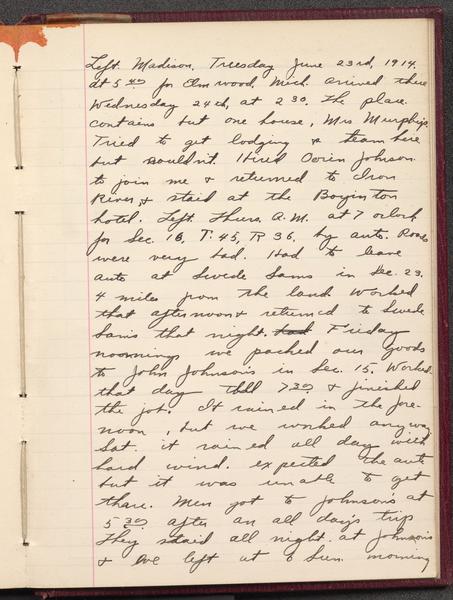 Left Madison, Tuesday June 23rd, 1914.
At 5 40 for Elmwood, Mich. arrived there
Wednesday 24th, at 2 30. The place
contains but one house, Mrs Murphys.
Tried to get lodging & team here
but couldn't. Hired Orrin Johnson
to join me & returned to Iron
River & staid at the Boyington
hotel. Left Thurs. A.M. at 7 oclock
for Sec. 16, T. 45, R 36, by auto. Roads
were very bad. Had to leave
auto at Swede Sams in Sec. 23.
4 miles from the land. Worked
that afternoon & returned to Swede
Sams that night. had Friday
noornings we packed our goods
to John Johnson's in Sec. 15. Worked
that day till 7 30 & finished
the job. It rained in the fore-
noon, but we worked anyway
Sat. it rained all day with
hard wind. expected the auto
but it was unable to get
there. Men got to Johnson's at
5 30 after an all day's trip
They staid all night at Johnson's
& we left at 6 Sun. morning